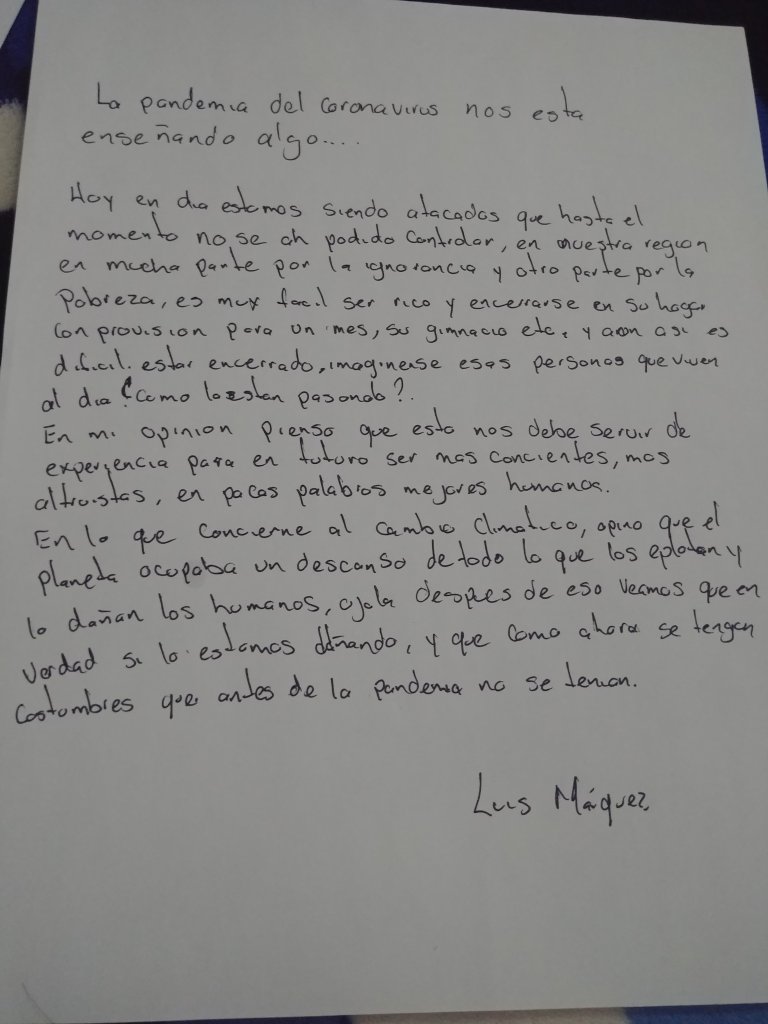 La pandemia del coronavirus nos esta
enseñando algo....
Hoy en dia estamos siendo atacados que hasta el
momento no se ah podido Controlar, en nuestra region
en mucha parte por la ignorancia y otra parte por la
Pobreza, es muy facil ser rico y encerrarse en su hogar
Con provision para un mes, su gimnacio etc, y aron asi es
dificil estar encerrado, imaginense esas personas que viven
al dia ¿Como la estan pasando?.
En mi opinion pienso que esto nos debe servir de
experiencia para en futuro ser mas concientes, mas
altroistas, en pocas palabras mejores humanos.
En lo que Concierne al Cambio Climatico, opino que el
planeta ocupaba un descanso de todo lo que los eplotan y
lo dañan los humanos, ojala despues de eso veamos que en
verdad si lo estamos dañando, y que como ahora se tengan
Costumbres que antes de la pandemia no se tenian.
Luis Máquez